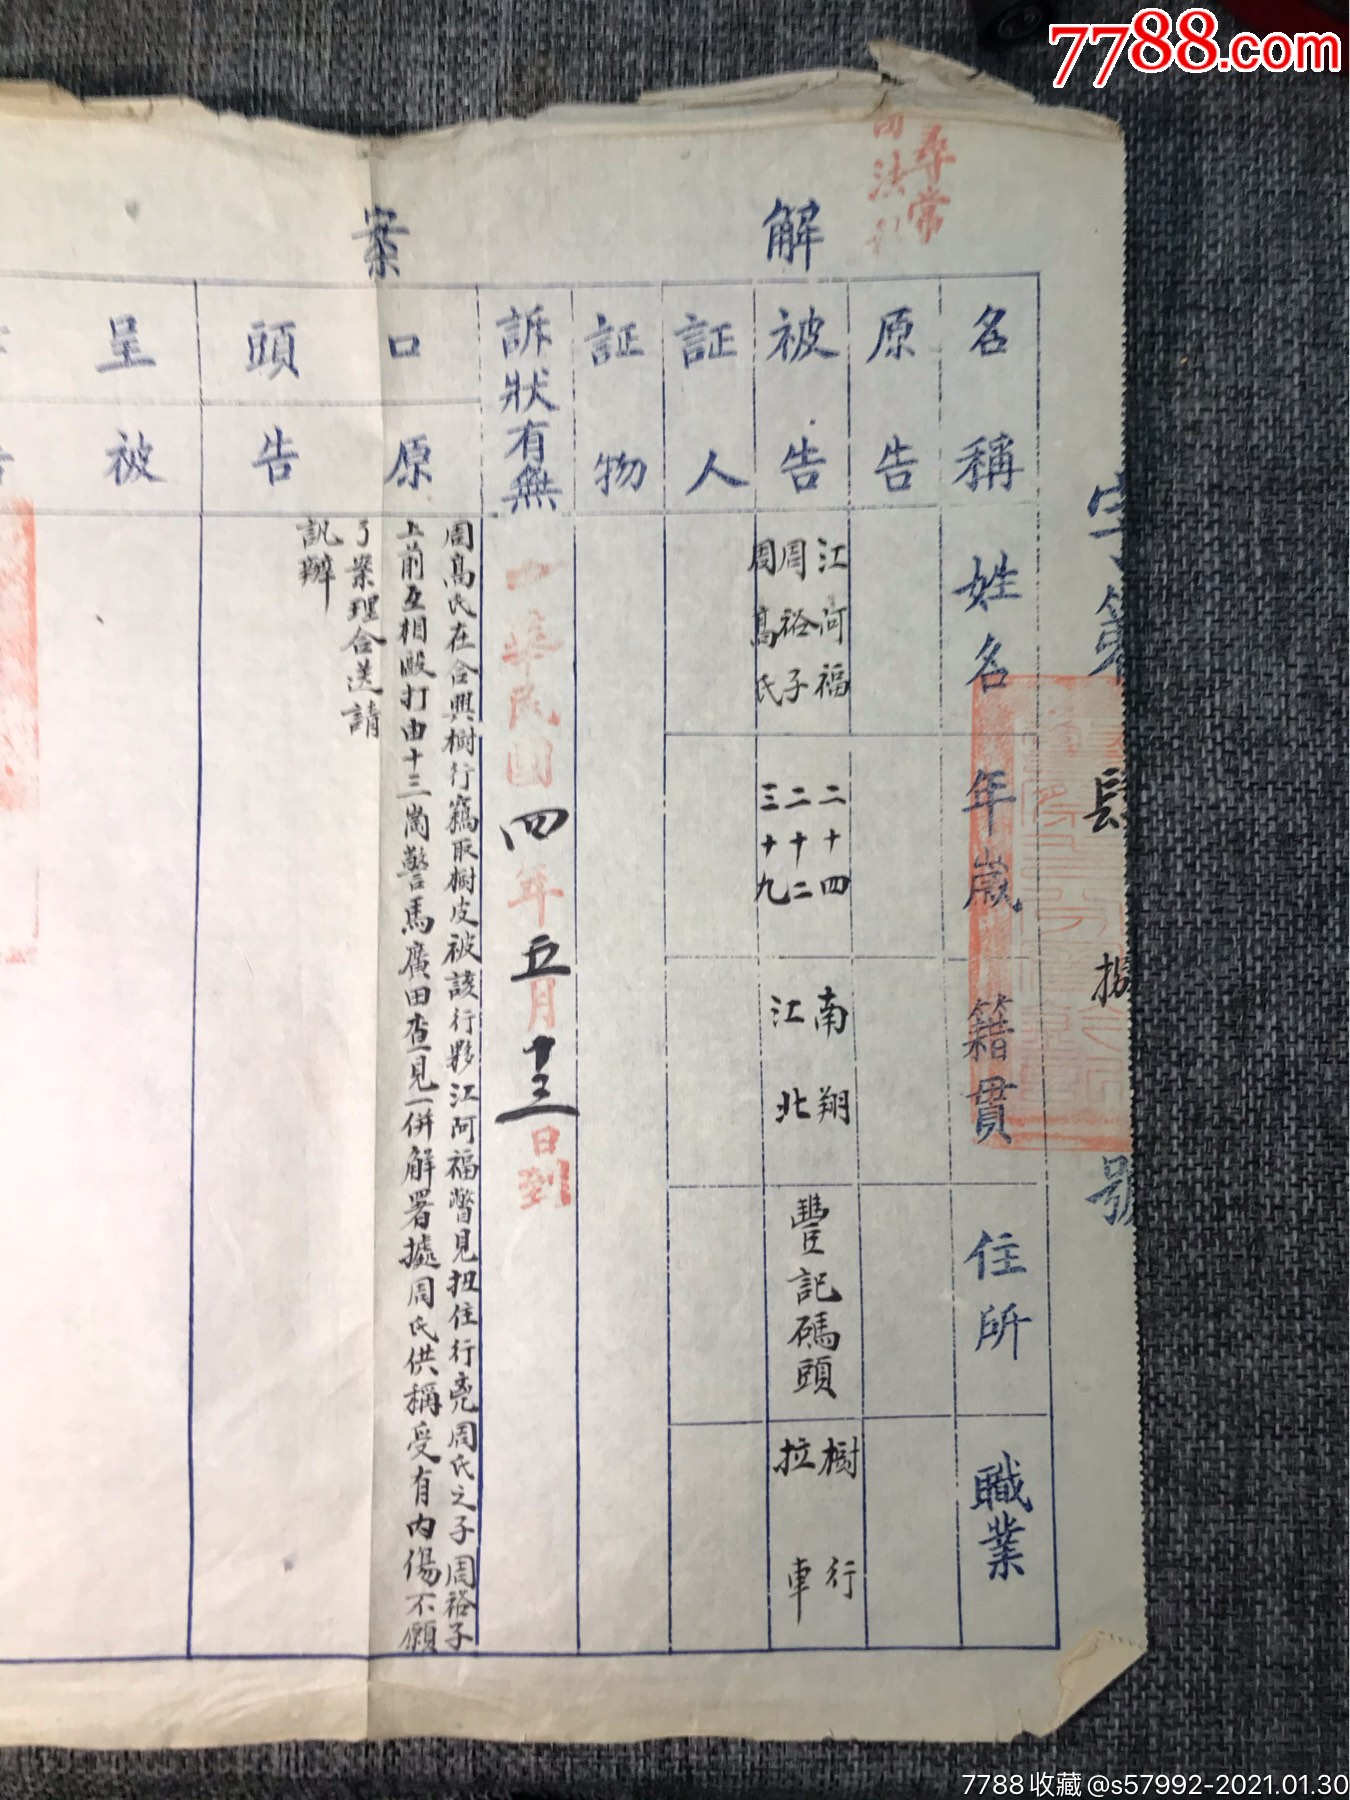 7788.com
尋常
法
解案
字第肆捌號
名稱 姓名 年歲 籍貫 住所 職業
原告
被告 江阿福 二十四 南翔 豐記碼頭 樹行
周裕子 二十二 江北 拉車
周高氏 三十九
証人
証物
訴狀有無
中華民國四年五月十三日到
口頭
原告
周高氏在合興樹行竊取樹皮被該行夥江阿福瞥見扭住行兇周氏之子周裕子
上前互相毆打由十三崗警馬廣田查見一併解署據周氏供稱受有內傷不願
了案理合送請
訊辦
呈
被
7788收藏@s57992-2021.01.30